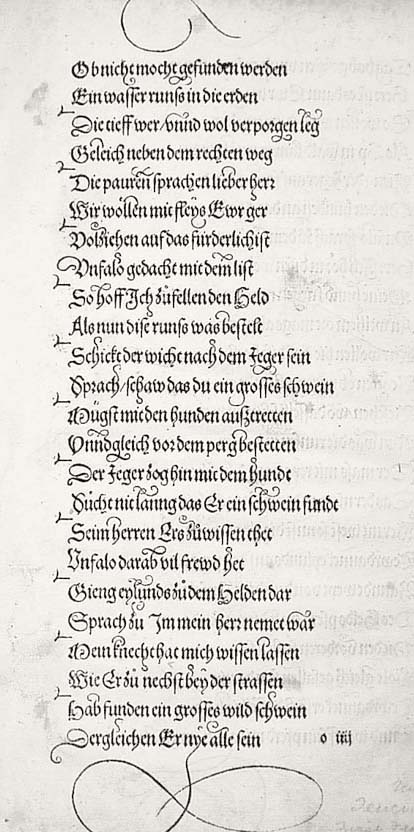 Ob nicht mocht gefunden werden
Ein wasser runſs in die erden
Die tieff wer/vnnd wol verporgen leg
Geleich neben dem rechten weg
Die paurñ sprachen lieber herr
Wir wöllen mit fleys Ewr ger
Volziehen auf das fürderlichist
Vnfalo gedacht mit dem list
So hoff Ich zůfellen den Held
Als nun dise runſs was bestelt
Schickt der wicht nach dem Jeger sein
Sprach/schaw das du ein grosses schwein
Mügst mit den hunden aufztretten
Vnnd gleich vor dem perg bestetten
Der Jeger zog hin mit dem hundt
Sůcht nit lanng das Er ein schwein fundt
Seim herren Ers zůwissen thet
Vnfalo darab vil frewd het
Gieng eylunds zů dem Helden dar
Sprach zů Im mein herr nemet war
Mein knecht hat mich wissen lassen
Wie Er zů nechst bey der strassen
Hab funden ein grosses wild schwein
Dergleichen Er nye alle sein o iiij